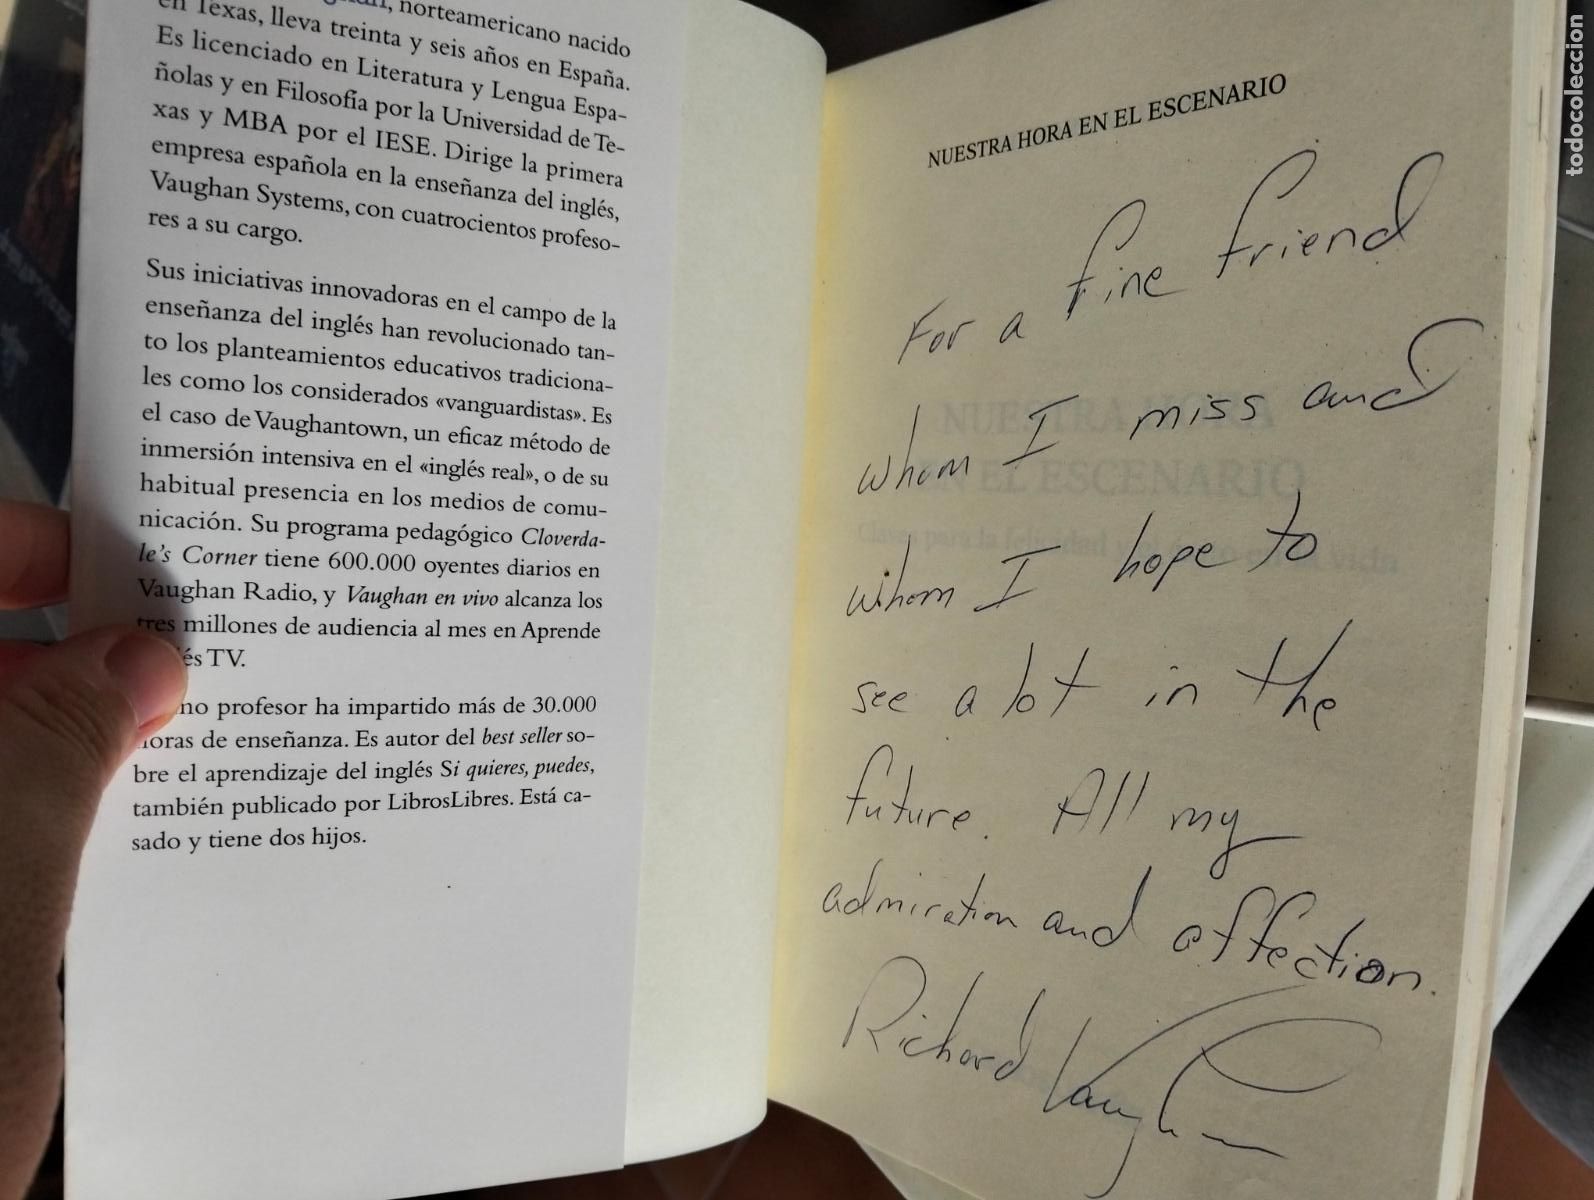 norteamericano nacido
en Texas, lleva treinta y seis años en España.
Es licenciado en Literatura y Lengua Espa-
ñolas y en Filosofía por la Universidad de Te-
xas y MBA por el IESE. Dirige la primera
empresa española en la enseñanza del inglés,
Vaughan Systems, con cuatrocientos profeso-
res a su cargo.
Sus iniciativas innovadoras en el campo de la
enseñanza del inglés han revolucionado tan-
to los planteamientos educativos tradiciona-
les como los considerados «vanguardistas». Es
el caso de Vaughantown, un eficaz método de
inmersión intensiva en el «inglés real», o de su
habitual presencia en los medios de comu-
nicación. Su programa pedagógico Cloverda-
le's Corner tiene 600.000 oyentes diarios en
Vaughan Radio, y Vaughan en vivo alcanza los
tres millones de audiencia al mes en Aprende
és TV.
no profesor ha impartido más de 30.000
horas de enseñanza. Es autor del best seller so-
bre el aprendizaje del inglés Si quieres, puedes,
también publicado por LibrosLibres. Está ca-
sado y tiene dos hijos.
NUESTRA HORA EN EL ESCENARIO
For a fine friend
whom I miss and
whom I hope to
see a lot in the
future. All my
admiration and affection.
Richard Vaughan
NUESTRA HORA
EN EL ESCENARIO
Claves para la felicidad y el en la vida
todocoleccion